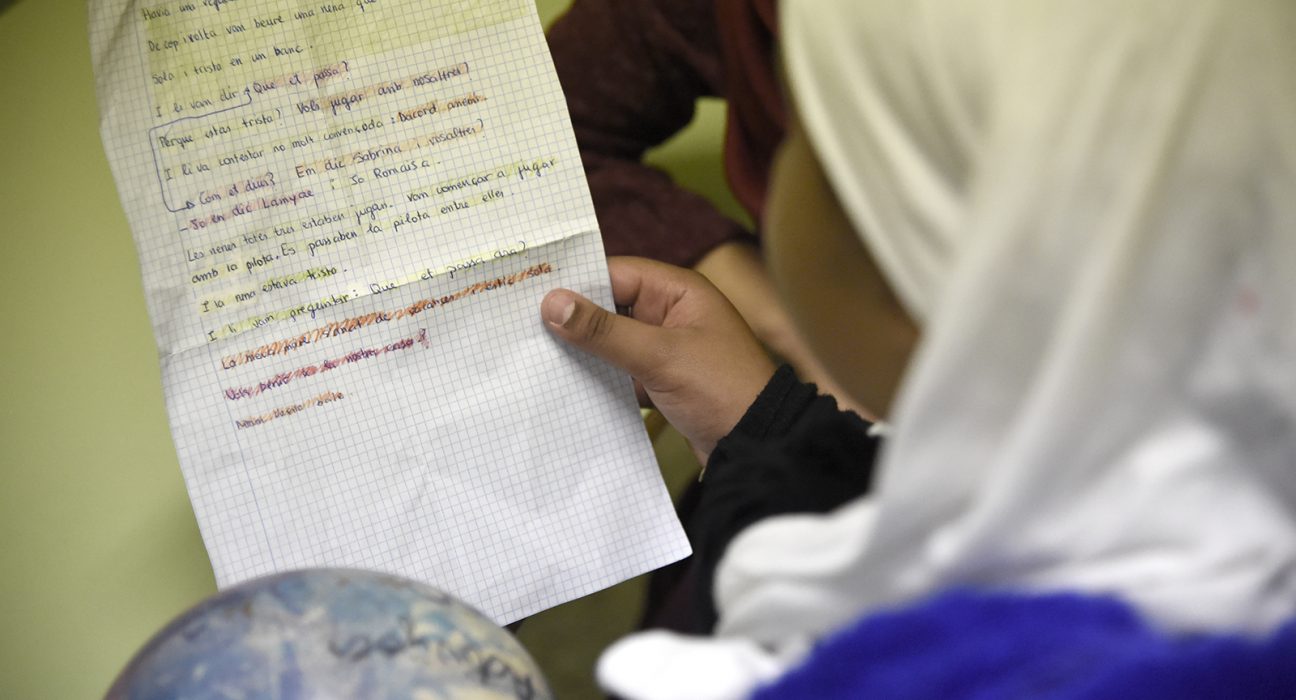 Havia una
De cop i volta van beure una nena que
Sola i trista en un banc.
I li van dir Que et passa?
Perque estas trista? Vols jugar amb nosaltres?
I li va contestar no molt convençoda: Dacord anem.
Com et dius? Em dic Sabrina i vosaltres?
- Jo en dic Lamyae i Jo Romaisa.
Les nenes totes tres estaben jugan. Van començar a jugar
amb la pilota. Es passaben la pilota entre elles.
I la nena estava trista.
I li van preguntar: Que et passa ara?
La meva mare de i estic sola
Vols venir a la nostra casa?